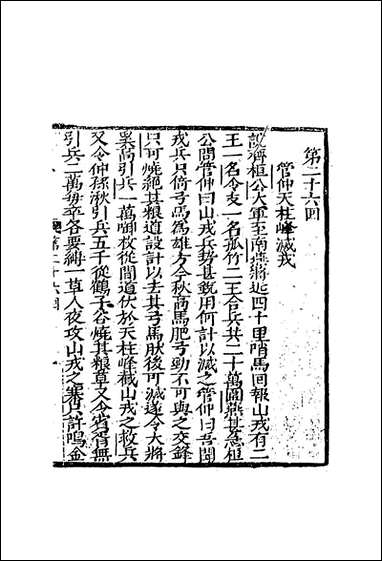 第二十六回
管仲天柱峰滅戎
說齊桓公大軍至南燕將近四十里哨馬回報山戎有二
王一名令支一名孤竹二王合兵共二十萬圍燕甚急桓
公問管仲曰山戎兵勢甚銳用何計以滅之管仲曰吾聞
戎兵只倚弓馬為雄方今秋高馬肥弓勁不可與之交鋒
只可燒絕其粮道設計以去其弓馬然後可滅遂令大將
引兵一萬啣枚從間道伏於天柱峰截山戎之救兵
又令仲孫湫引兵五千從鶴子谷燒其粮草又令
引兵二萬每卒各要縛一草人夜攻山戎之寨只許鳴金
第二十六回